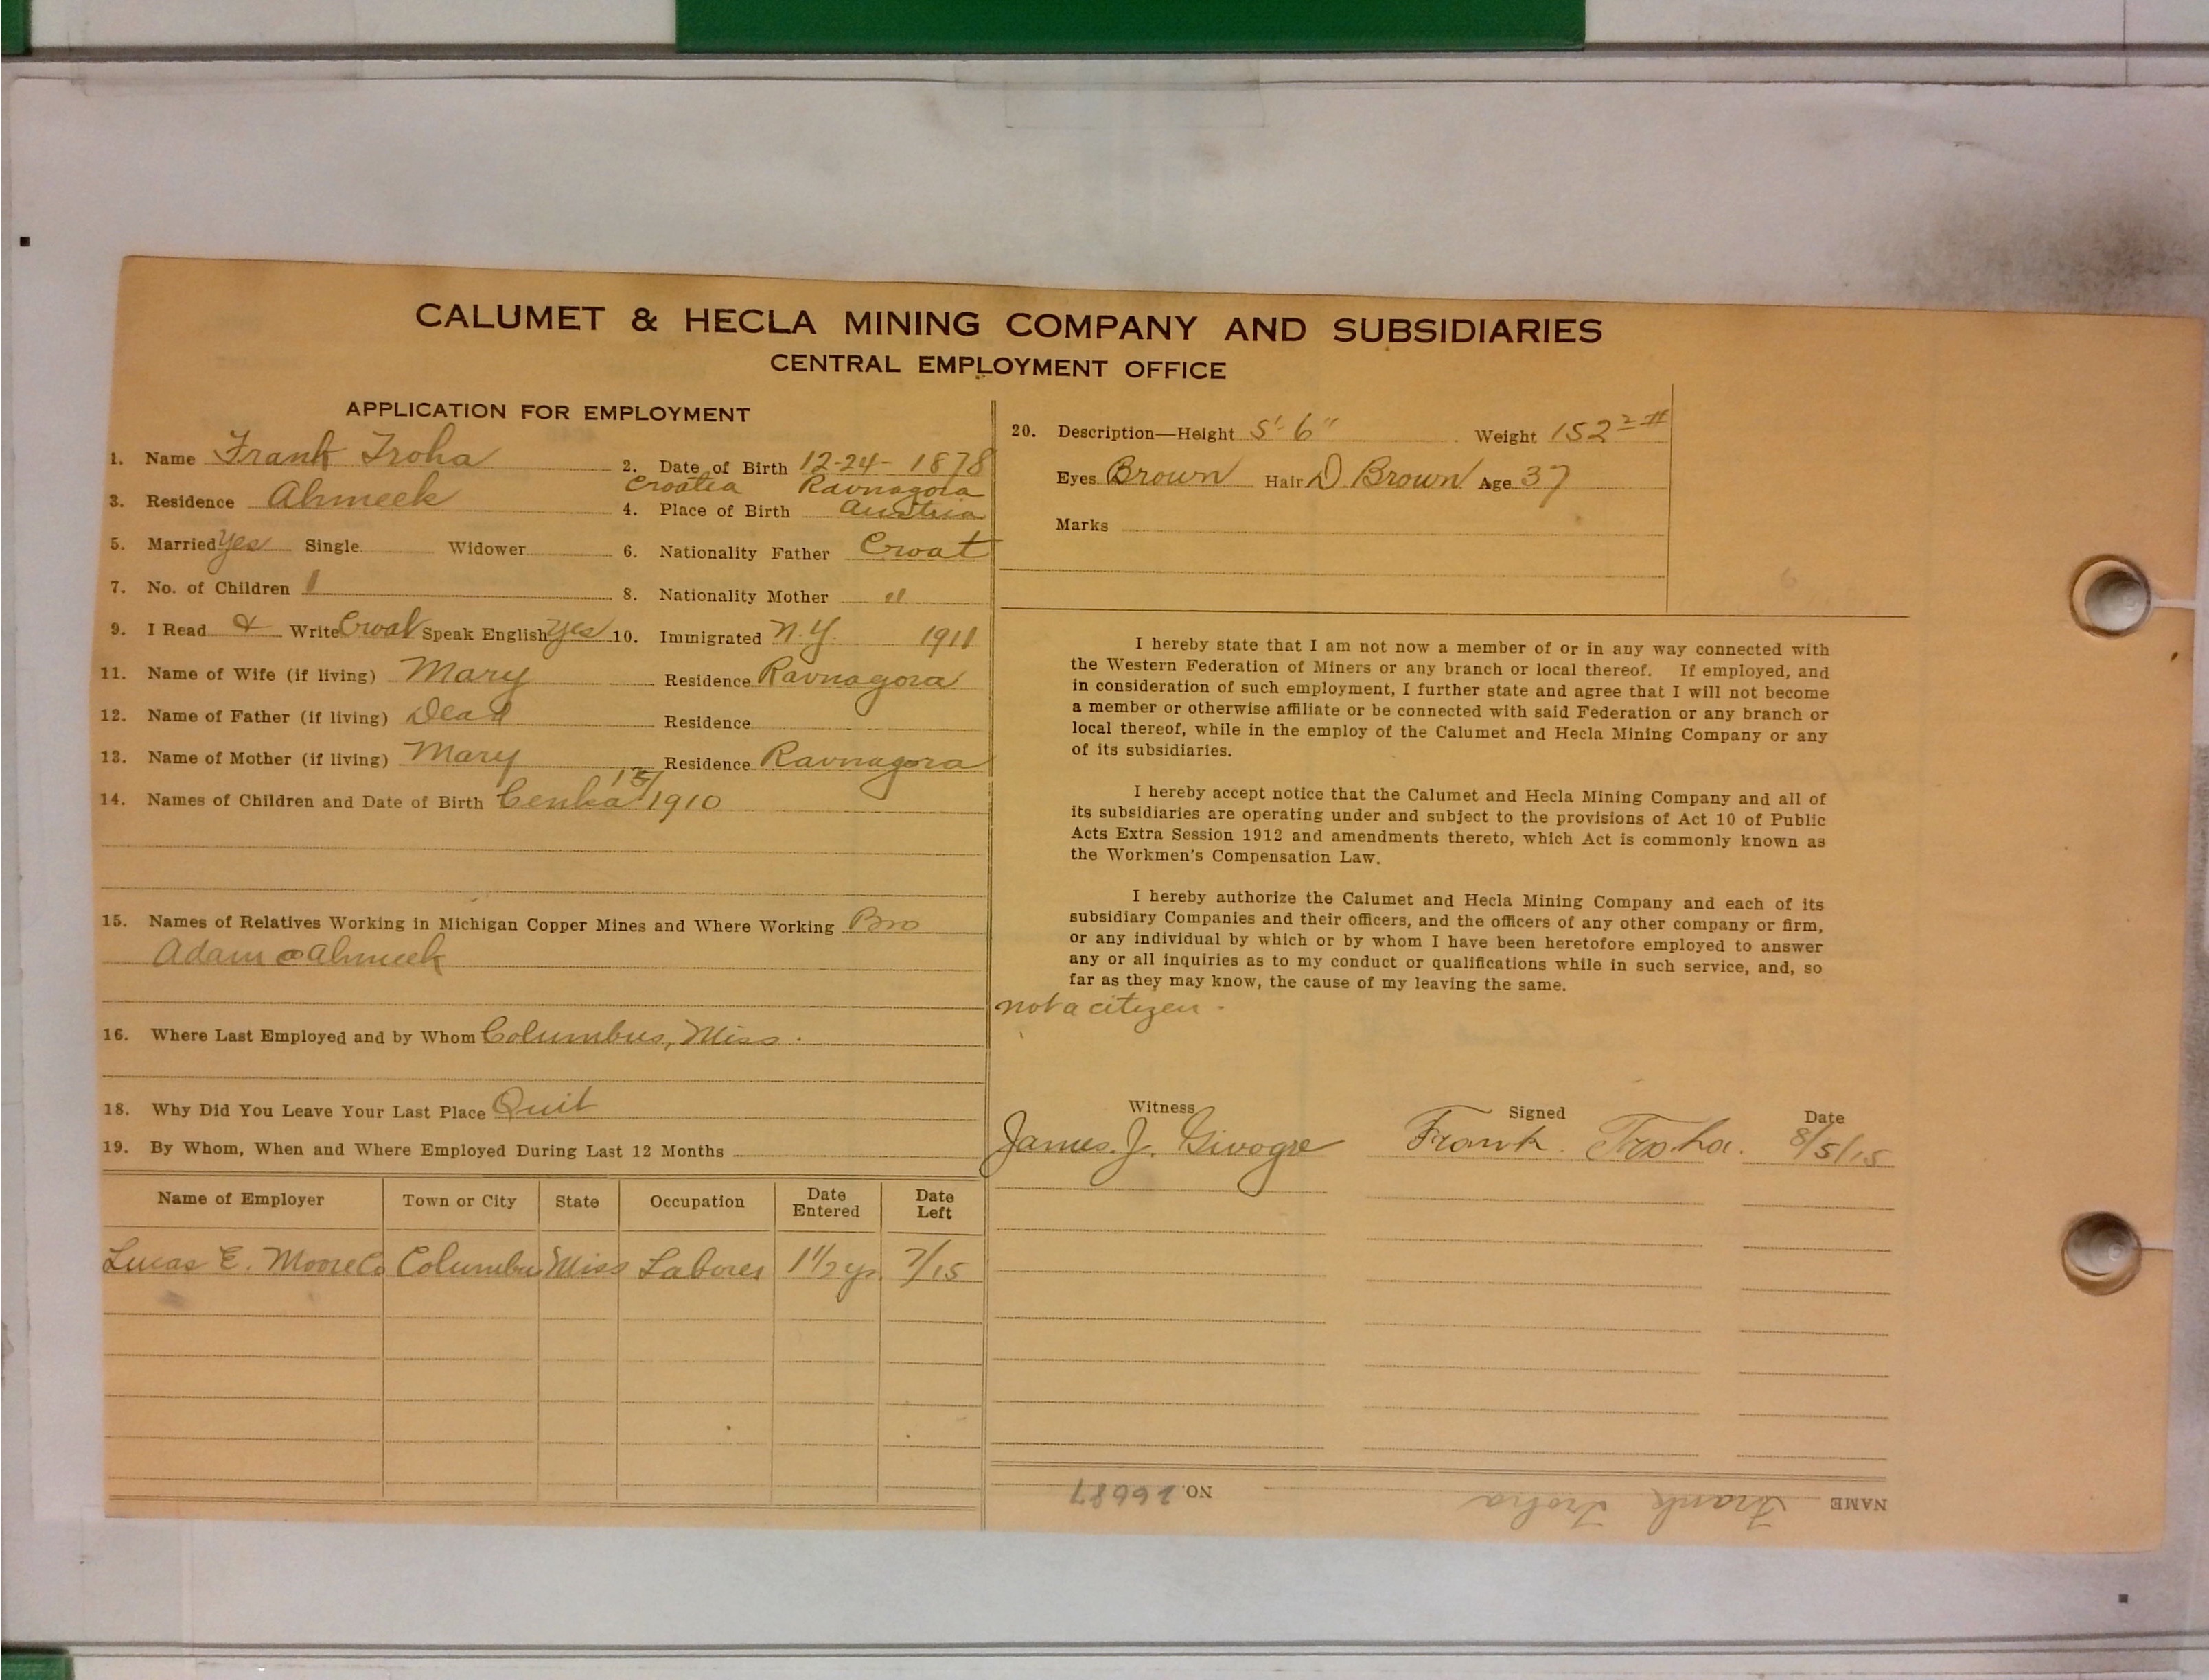 CALUMET & HECLA MINING COMPANY AND SUBSIDIARIES
CENTRAL EMPLOYMENT OFFICE
APPLICATION FOR EMPLOYMENT
1. Name Frank Troha 2. Date of Birth 12-24-1878
Croatia Ravnagora
3. Residence Ahmeek 4. Place of Birth Austria
5. Married Yes Single Widower 6. Nationality Father Croat
7. No. of Children 1 8. Nationality Mother "
9. I Read & Write Croat Speak English Yes 10. Immigrated N.Y. 1911
11. Name of Wife (if living) Mary Residence Ravnagora
12. Name of Father (if living) Dead Residence
13. Name of Mother (if living) Mary Residence Ravnagora
14. Names of Children and Date of Birth 1910
15. Names of Relatives Working in Michigan Copper Mines and Where Working Bro
Adam Ahmeek
16. Where Last Employed and by Whom Columbus, Miss.
18. Why Did You Leave Your Last Place Quit
19. By Whom, When and Where Employed During Last 12 Months
Name of Employer Town or City State Occupation Date Entered Date Left
Lucas E. Moore Co Columbus Miss Laborer 1 1/2 yr 7/15
20. Description—Height 5'-6" Weight 152 #
Eyes Brown Hair D Brown Age 37
Marks
I hereby state that I am not now a member of or in any way connected with
the Western Federation of Miners or any branch or local thereof. If employed, and
in consideration of such employment, I further state and agree that I will not become
a member or otherwise affiliate or be connected with said Federation or any branch or
local thereof, while in the employ of the Calumet and Hecla Mining Company or any
of its subsidiaries.
I hereby accept notice that the Calumet and Hecla Mining Company and all of
its subsidiaries are operating under and subject to the provisions of Act 10 of Public
Acts Extra Session 1912 and amendments thereto, which Act is commonly known as
the Workmen's Compensation Law.
I hereby authorize the Calumet and Hecla Mining Company and each of its
subsidiary Companies and their officers, and the officers of any other company or firm,
or any individual by which or by whom I have been heretofore employed to answer
any or all inquiries as to my conduct or qualifications while in such service, and, so
far as they may know, the cause of my leaving the same.
not a citizen.
Witness Signed Date
James. J. Givogre Frank. Troha. 8/5/15
NAME Frank Troha NO. 26687